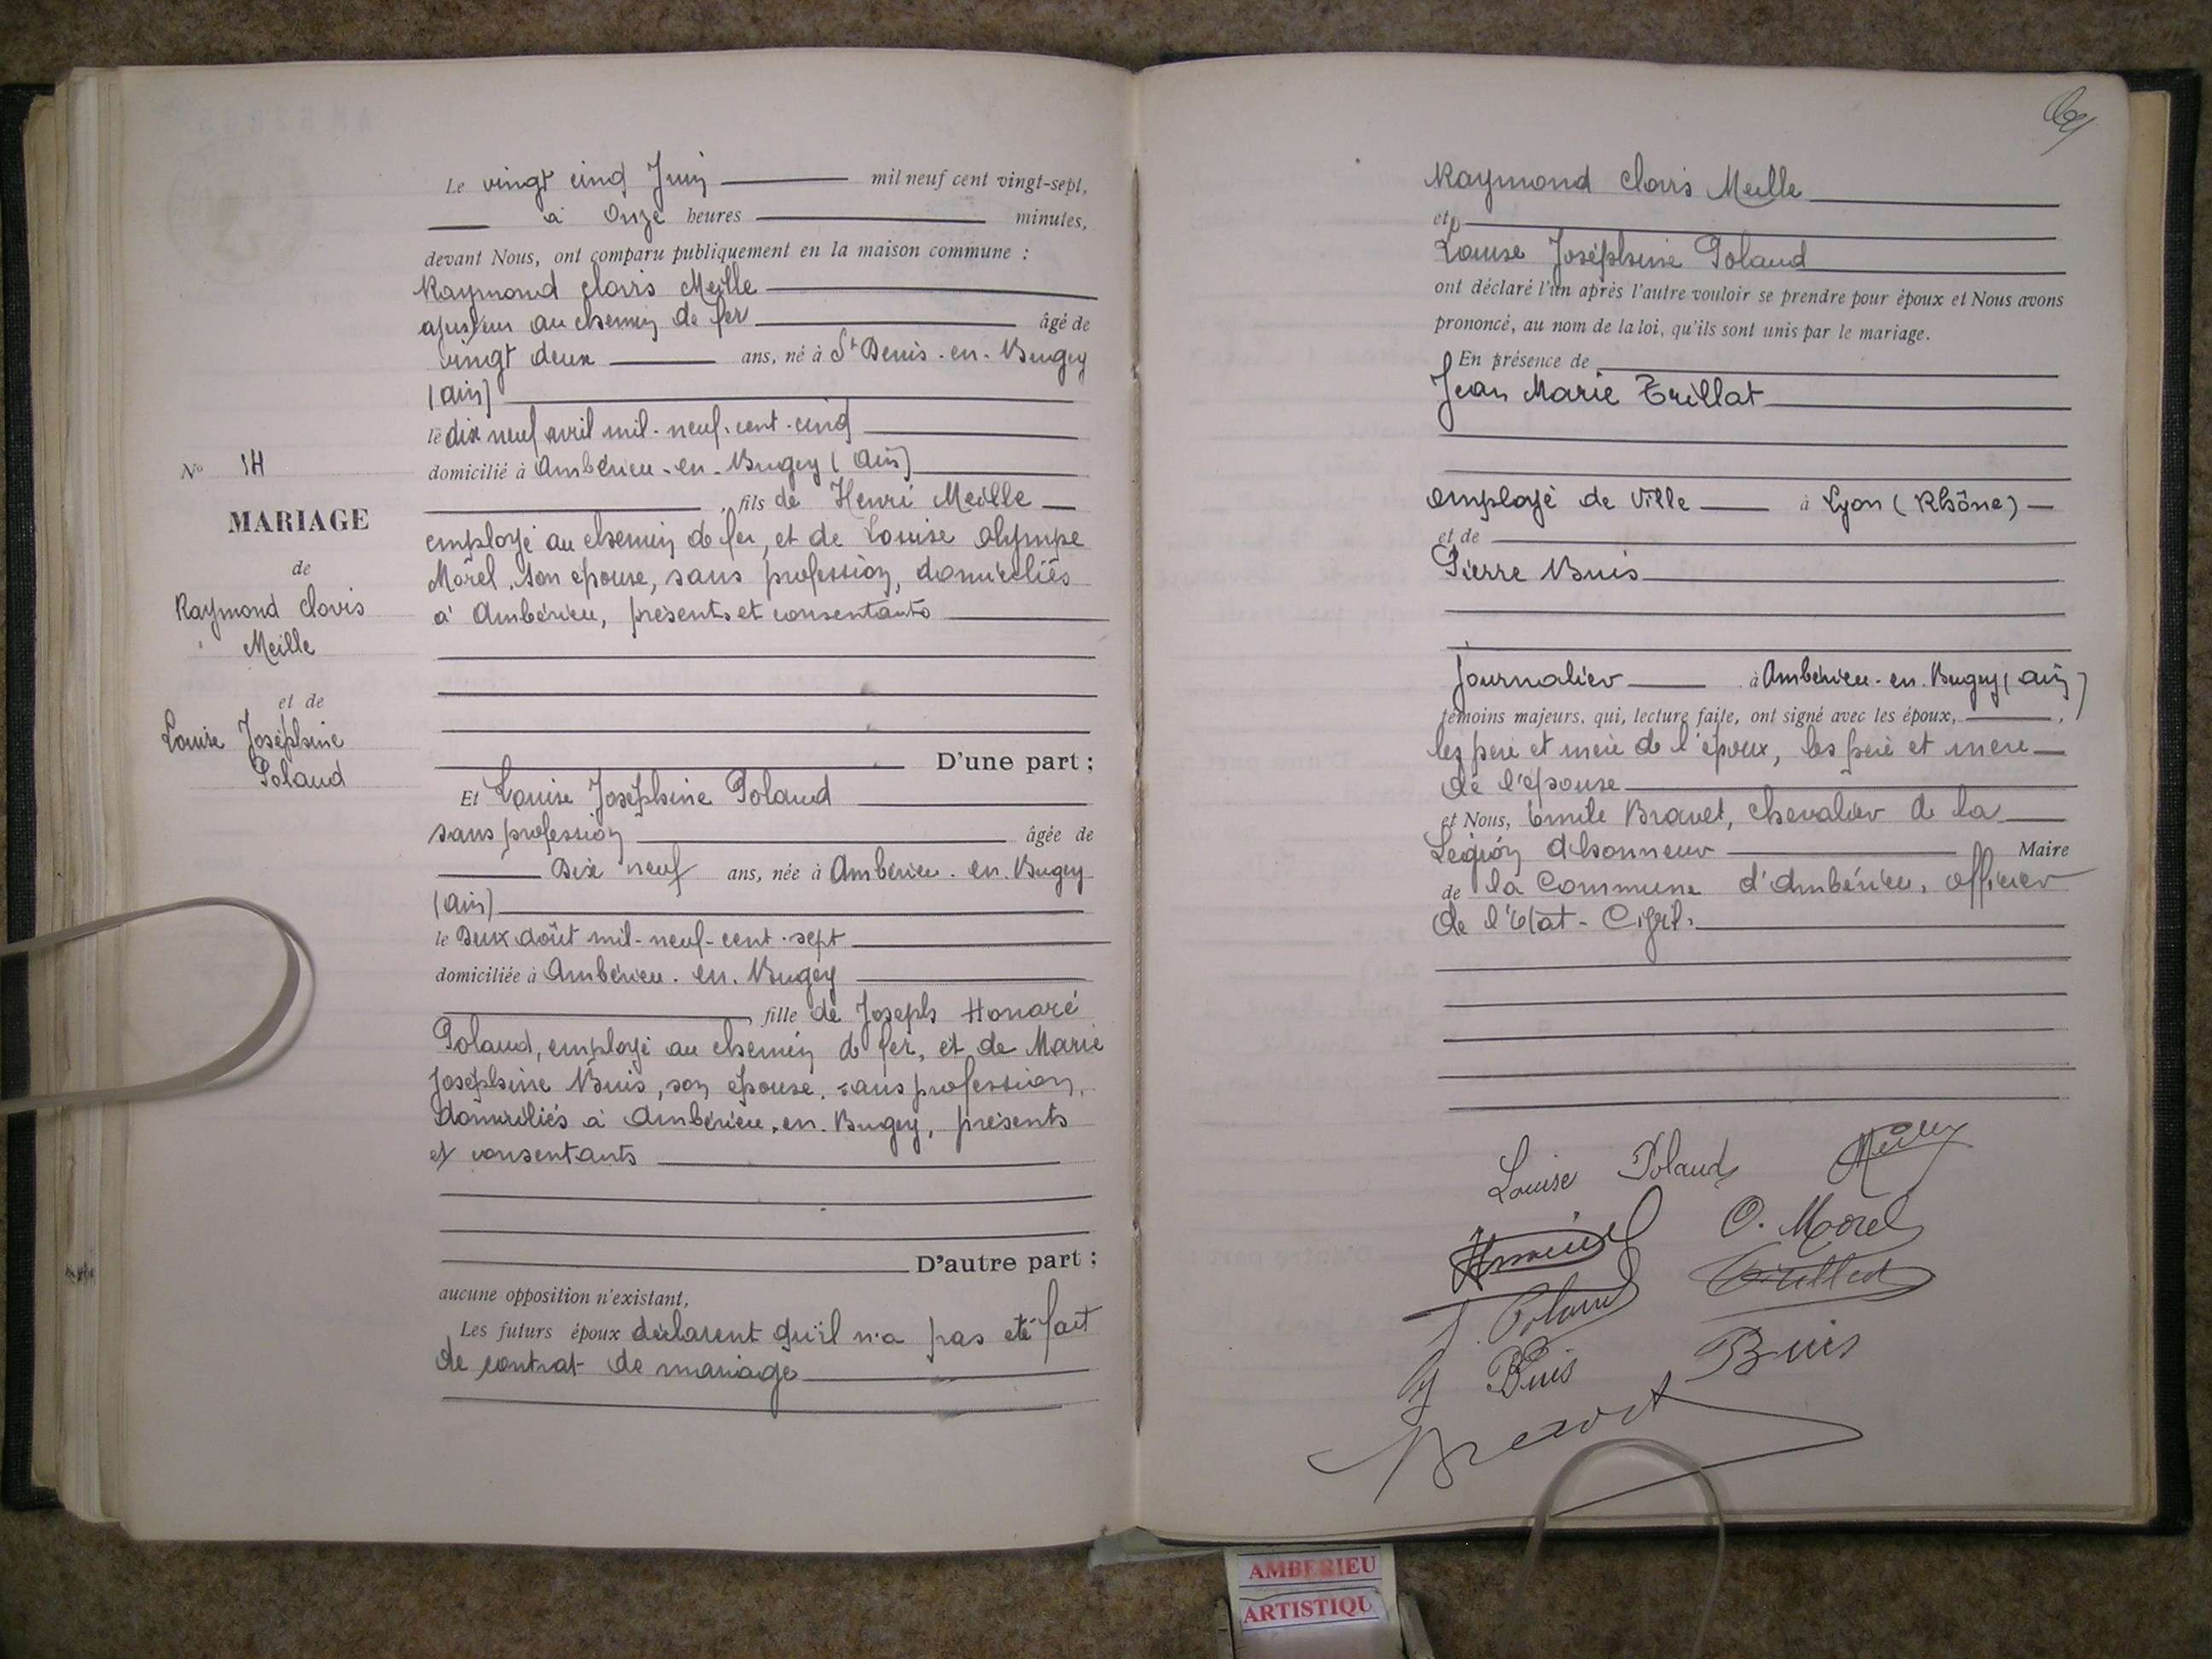 Le vingt cinq Juin mil neuf cent vingt-sept,
à Onze heures minutes,
devant Nous, ont comparu publiquement en la maison commune :
Raymond Clovis Meille
ajusteur au chemin de fer âgé de
vingt deux ans, né à St Denis-en-Bugey
(Ain)
le dix neuf avril mil-neuf-cent-cinq
domicilié à Ambérieu-en-Bugey (Ain)
, fils de Henri Meille
employé au chemin de fer, et de Louise Olympe
Morel, son épouse, sans profession, domiciliés
à Ambérieu, présents et consentants
D'une part ;
Et Louise Joséphine Poland
sans profession âgée de
Dix neuf ans, née à Ambérieu-en-Bugey
(Ain)
le Deux août mil-neuf-cent-sept
domiciliée à Ambérieu-en-Bugey
, fille de Joseph Honoré
Poland, employé au chemin de fer, et de Marie
Joséphine Buis, son épouse, sans profession,
domiciliés à Ambérieu-en-Bugey, présents
et consentants
D'autre part ;
aucune opposition n'existant,
Les futurs époux déclarent qu'il n'a pas été fait
de contrat de mariage
No 14
MARIAGE
de
Raymond Clovis
Meille
et de
Louise Joséphine
Poland
Raymond Clovis Meille
et
Louise Joséphine Poland
ont déclaré l'un après l'autre vouloir se prendre pour époux et Nous avons
prononcé, au nom de la loi, qu'ils sont unis par le mariage.
En présence de
Jean Marie Trillat
employé de Ville à Lyon (Rhône)
et de
Pierre Buis
Journalier à Ambérieu-en-Bugey (Ain)
témoins majeurs, qui, lecture faite, ont signé avec les époux,
les père et mère de l'époux, les père et mère
de l'épouse
et Nous, Emile Bravet, Chevalier de la
Légion d'honneur Maire
de la Commune d'Ambérieu, officier
de l'Etat-Civil.
Louise Poland Meille
O. Morel
J. Poland Trillat
Buis Buis
Bravet
AMBERIEU
ARTISTIQU